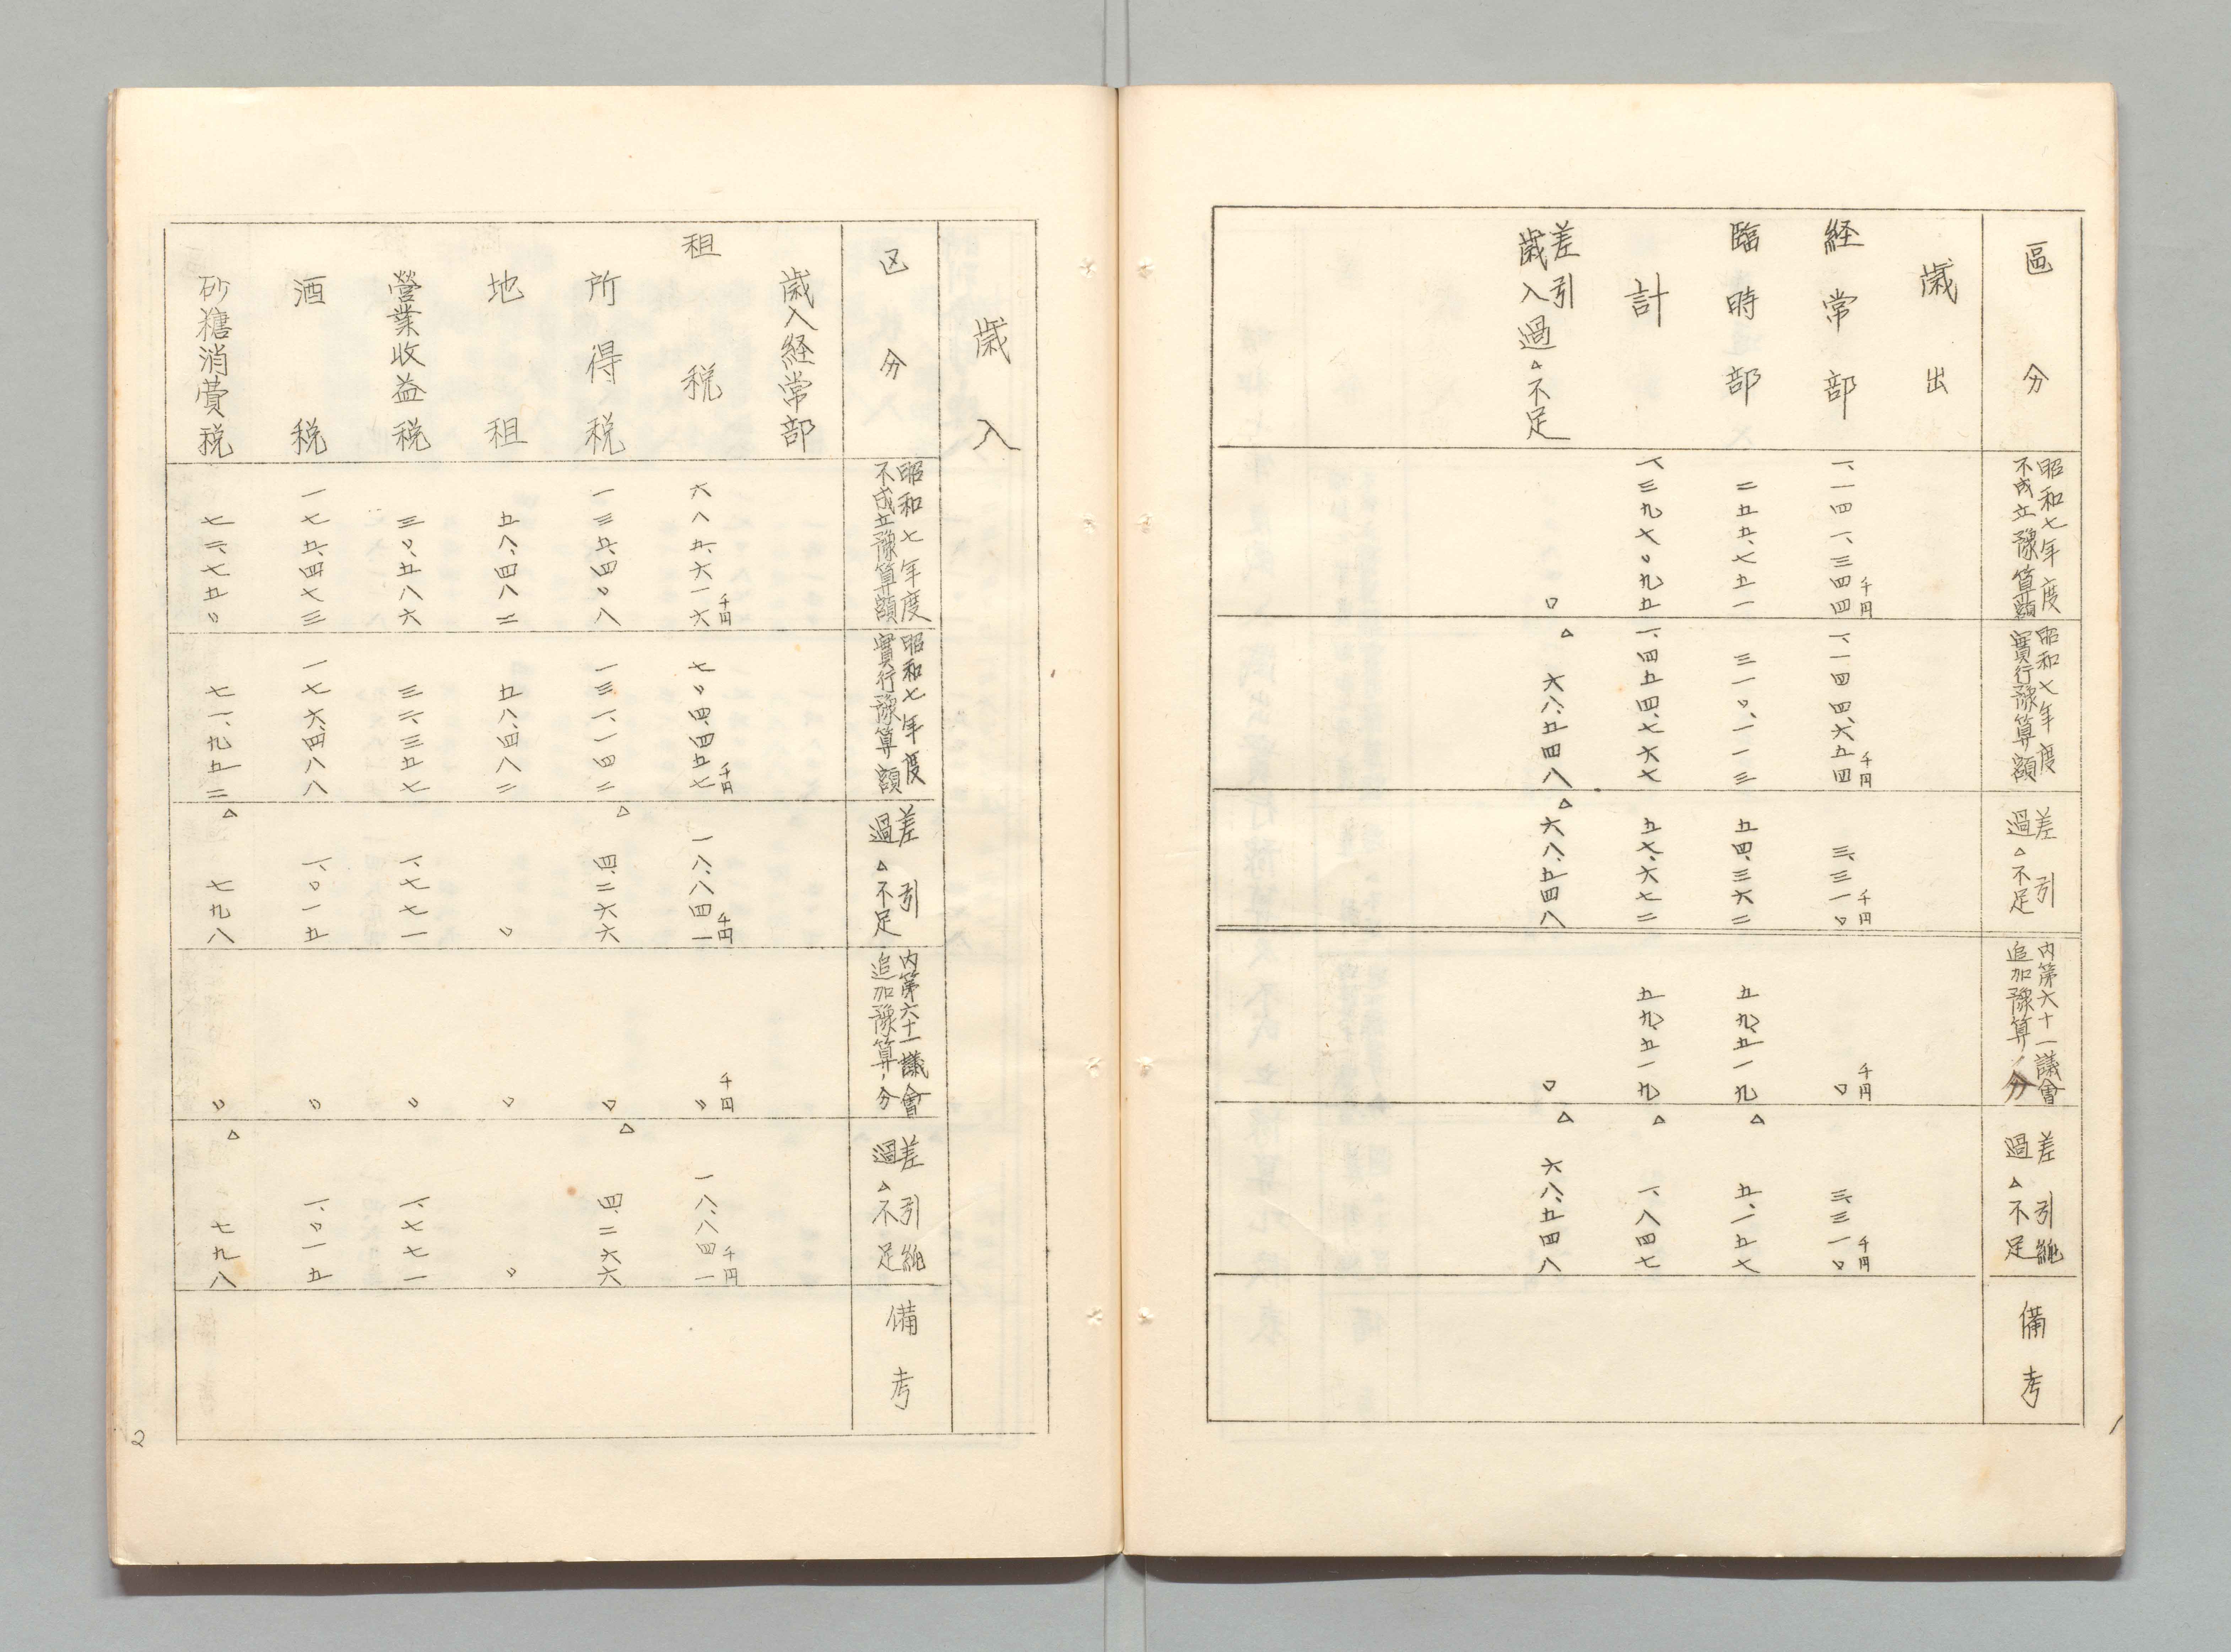 區分 昭和七年度不成立豫算額 昭和七年度實行豫算額 差引過△不足 内第六十一議會追加豫算ノ分 差引純過△不足 備考
歳出
経常部 一、一四一、三四四千円 一、一四四、六五四千円 三、三一〇千円 〇千円 三、三一〇千円
臨時部 二五五、七五一 三一〇、一一三 五四、三六二 五九、五一九 △五、一五七
計 一、三九七〇九五 一、四五四、七六七 五七、六七二 五九、五一九 △一、八四七
差引歳入過△不足 〇 △六八、五四八 △六八、五四八 〇 △六八、五四八
1
歳入
区分 昭和七年度不成立豫算額 昭和七年度實行豫算額 差引過△不足 内第六十一議會追加豫算ノ分 差引純過△不足 備考
歳入経常部
租税 六八五、六一六千円 七〇四、四五七千円 一八、八四一千円 〇千円 一八、八四一千円
所得税 一三五、四〇八 一三一、一四二 △四、二六六 〇 △四、二六六
地租 五八、四八二 五八、四八二 〇 〇 〇
營業收益税 三〇、五八六 三二、三五七 一、七七一 〇 一、七七一
酒税 一七五、四七三 一七六、四八八 一、〇一五 〇 一、〇一五
砂糖消費税 七二、七五〇 七一、九五二 △七九八 〇 △七九八
2